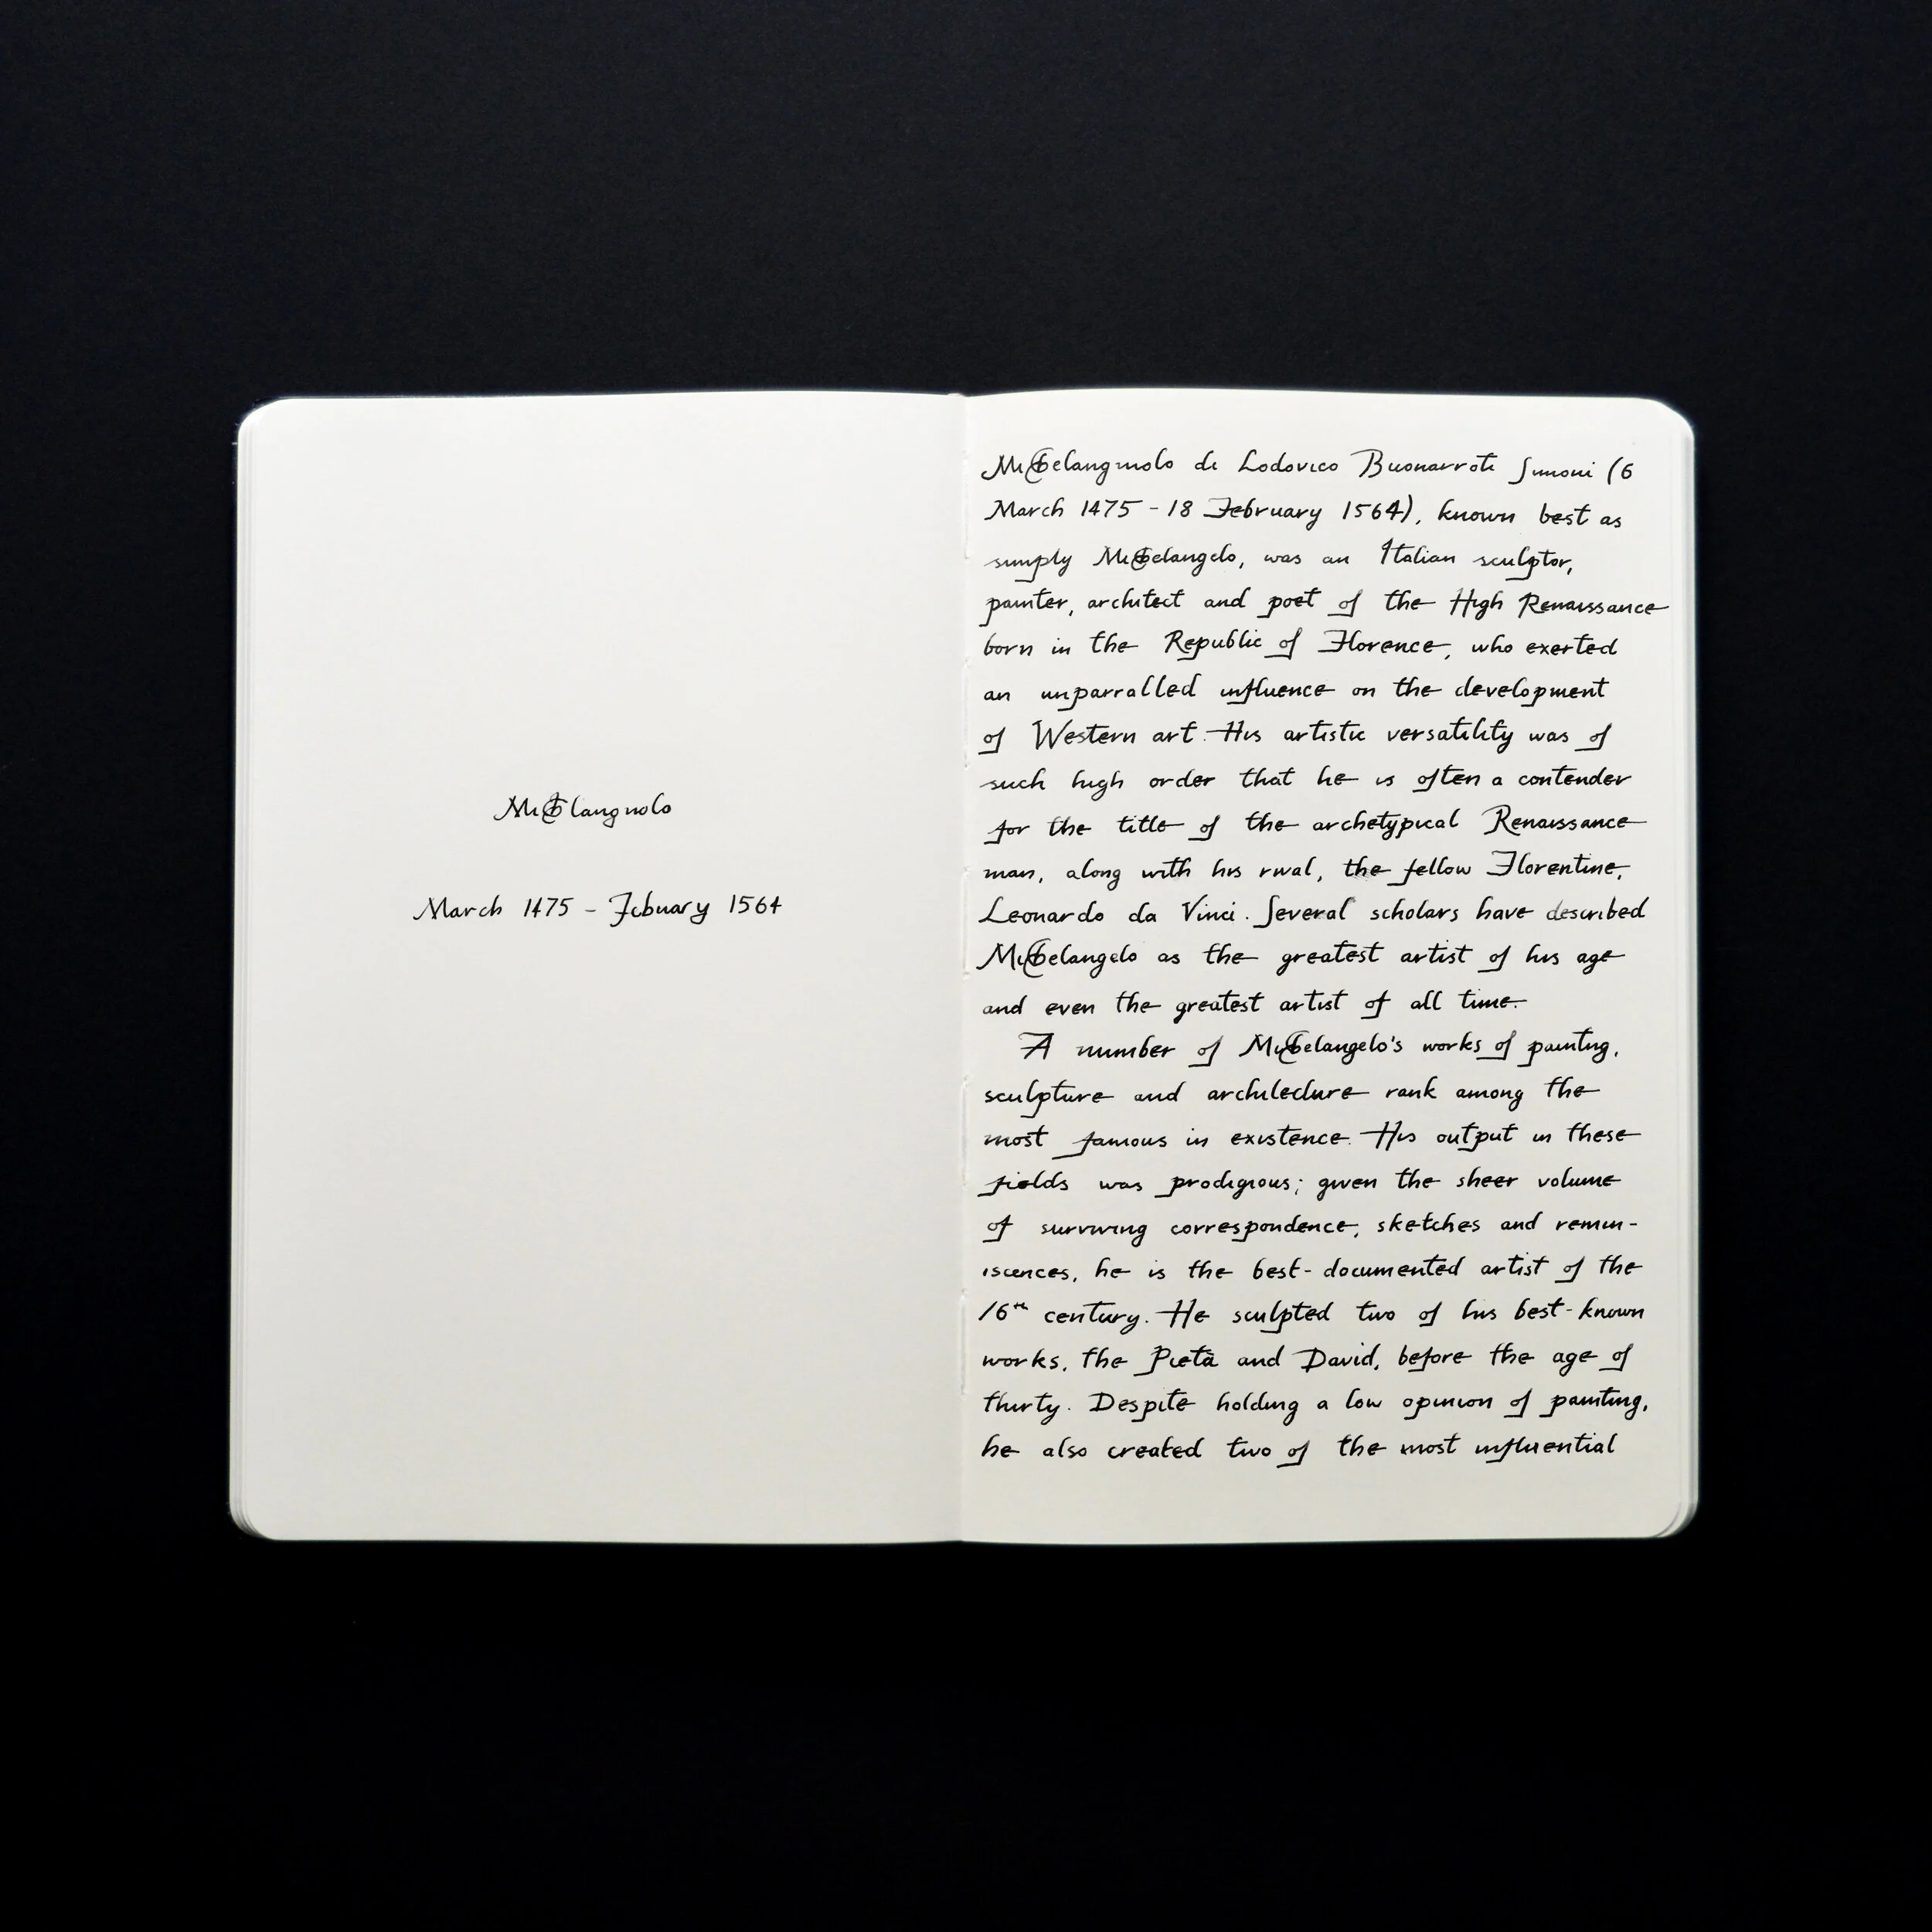 Michelangnolo
March 1475 - Febuary 1564
Michelangnolo di Lodovico Buonarroti Simoni (6
March 1475 - 18 February 1564), known best as
simply Michelangelo, was an Italian sculptor,
painter, architect and poet of the High Renaissance
born in the Republic of Florence, who exerted
an unparralled influence on the development
of Western art. His artistic versatility was of
such high order that he is often a contender
for the title of the archetypical Renaissance
man, along with his rival, the fellow Florentine,
Leonardo da Vinci. Several scholars have described
Michelangelo as the greatest artist of his age
and even the greatest artist of all time.
A number of Michelangelo's works of painting,
sculpture and architecture rank among the
most famous in existence. His output in these
fields was prodigious; given the sheer volume
of surviving correspondence, sketches and remin-
iscences, he is the best-documented artist of the
16th century. He sculpted two of his best-known
works, the Pietà and David, before the age of
thirty. Despite holding a low opinion of painting,
he also created two of the most influential